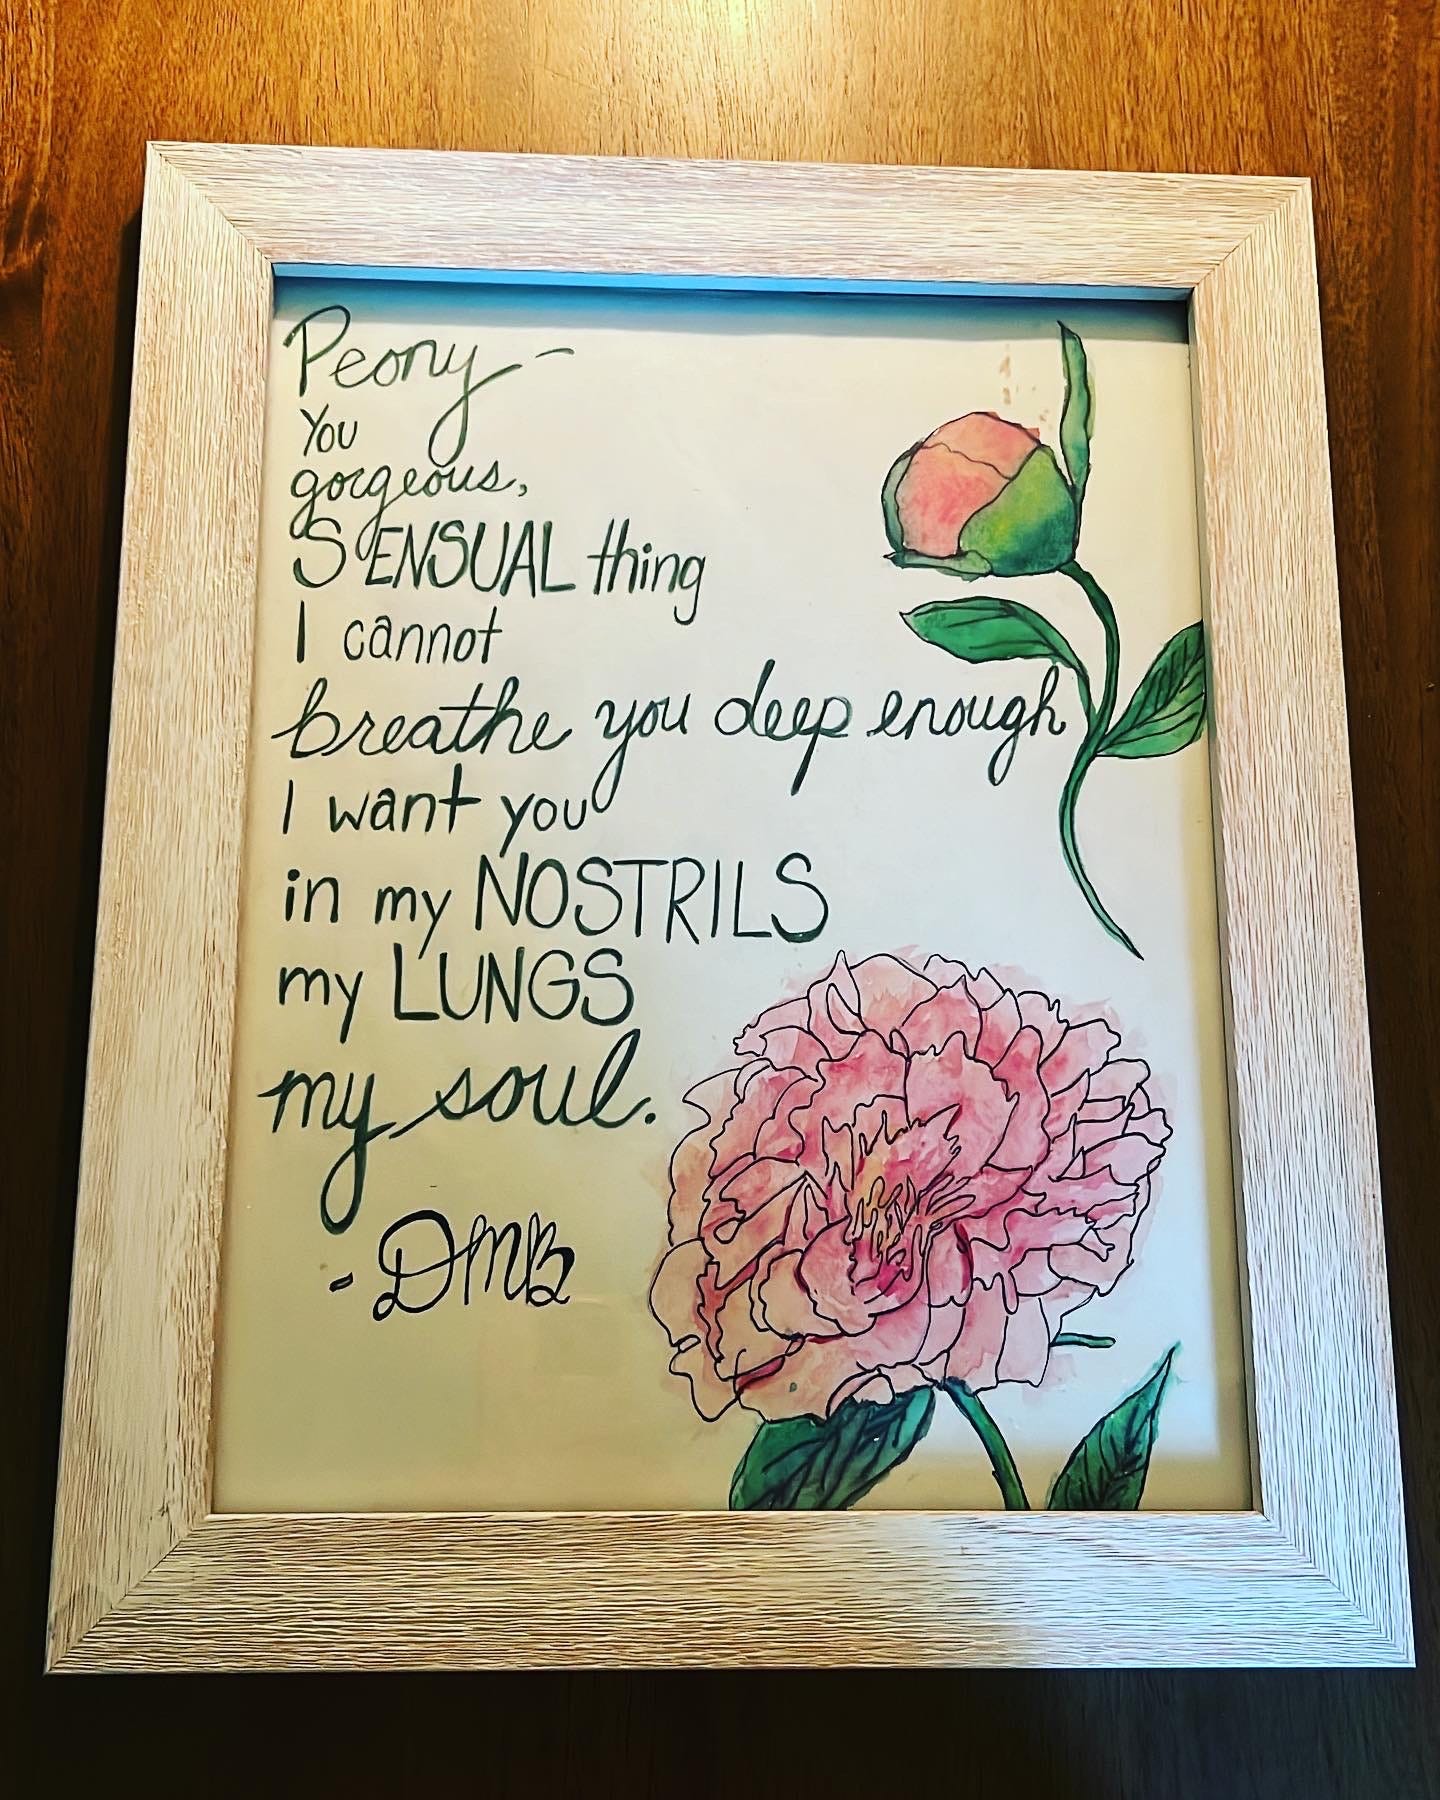 Peony -
You
gorgeous,
SENSUAL thing
I cannot
breathe you deep enough
I want you
in my NOSTRILS
my LUNGS
my soul.
- DMB